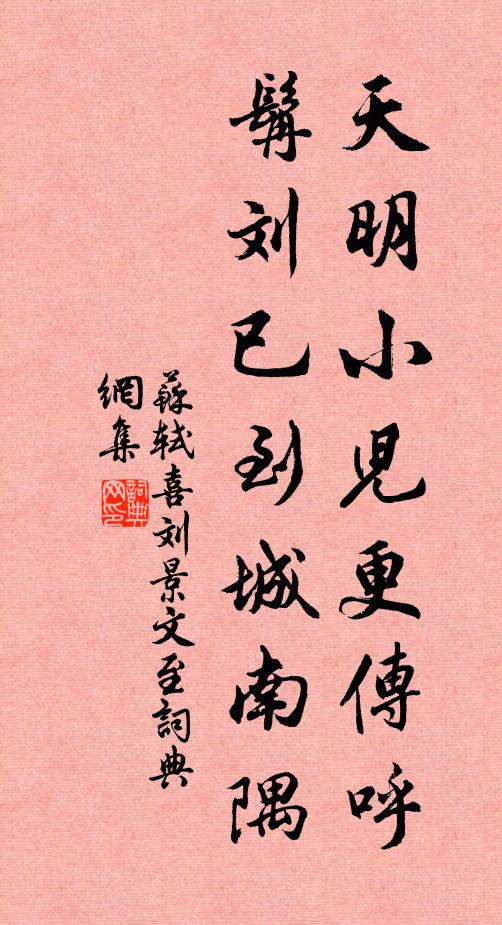 天明小児更傳呼
髯刘已到城南隅
蘇軾喜刘景文至詞典
網集
詞典網印